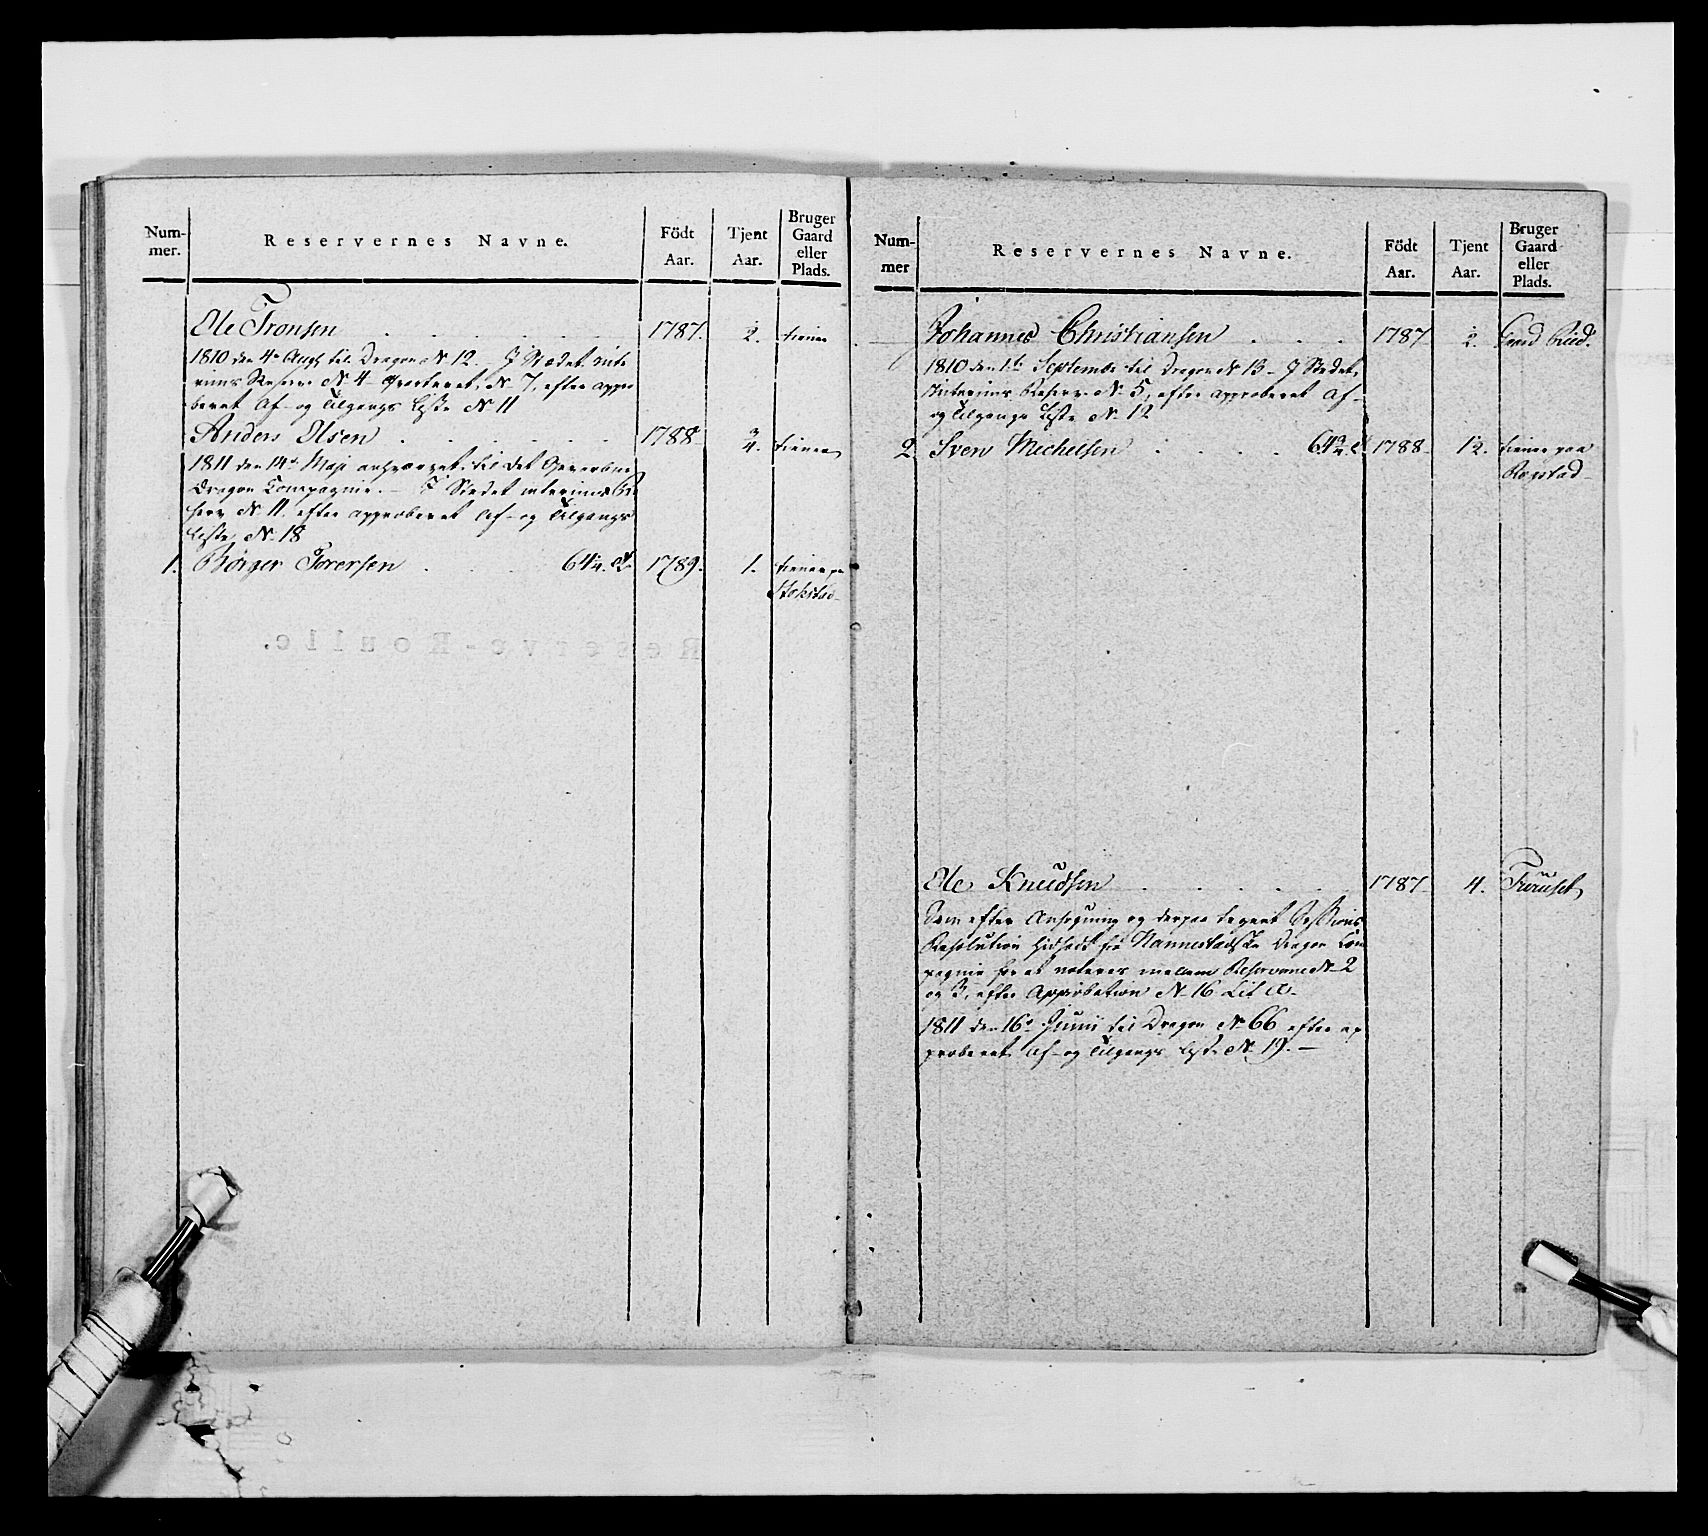 Num-
mer.
Reservernes Navne.
Födt
Aar.
Tjent
Aar.
Bruger
Gaard
eller
Plads.
Ole Tronsen 1787. 1/2. tiener
1810 den 4de Augt. til Dragon No 12 - I Stædet inte
rims Reserve No 4 - Qvarteret No 7, efter appro
beret Af- og Tilgangs Liste No 11
Anders Olsen 1788. 3/4. tiener
1811 den 14de Maji til det Gevorbne
Dragon Compagnie. - I Stedet interims Re
serv No 11. efter approberet Af- og Tilgangs
Liste No 18
1. Börger Torersen 64 1789. 1. tiener pa
Stokstad
Reserve-Roulle.
Num-
mer
Reservernes Navne.
Födt
Aar.
Tjent
Aar.
Bruger
Gaard
eller
Plads.
Johannes Christiansen 1787 1/2. Ruud.
1810 den 1te September til Dragon No 13 - I Stedet,
Interims Reserv No 5, efter approberet Af-
og Tilgangs Liste No 12
2 Sven Michelsen 64 1788. 1/2. tiener paa
Rogstad
Ole Knudsen 1787 4. Furuset
Som efter Ansögning og derpaa tegnet Sessions
Resolution hidsadt fra Nannestadske Dragon Com
pagnie for at noteres mellem Reserverne No 2
og 3, efter Approbation No 16 Lit A-
1811 den 16de Junii til Dragon No 66 efter ap
proberet Af- og Tilgangs Liste No 19. -